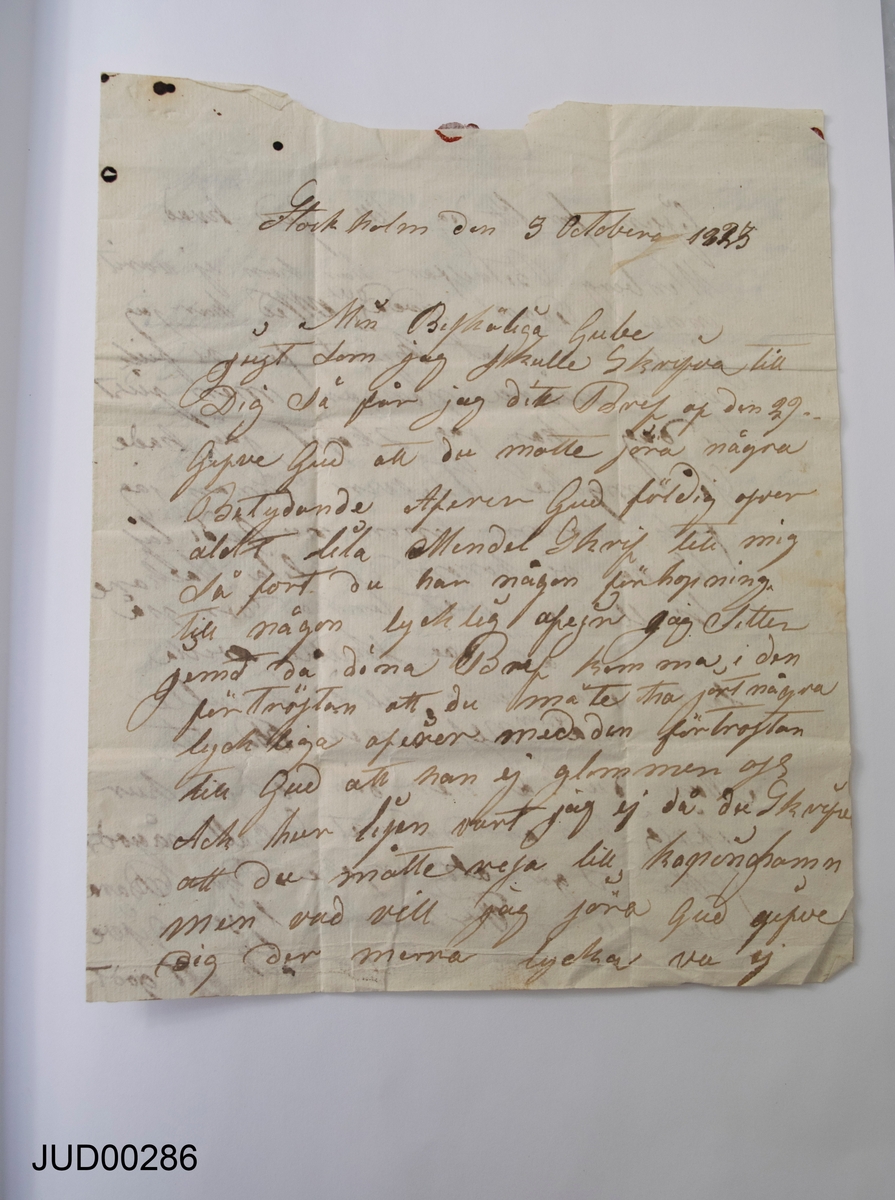 Stockholm den 3 October 1823
Min Beskäliga Gube
just Som jag skulle Skrifva till
Dig Så får jag ditt Bref af den 29.
Gifve Gud att du motte jöra några
Betydande Aferer Gud föl dig öfver
alt lila Mendel Skrif till mig
Så fort du har någon förhopning
till någon lycklig afejr jag Sitter
jemd då dina Bref komma i den
förtröstan att du måte ha jort några
lyckliga aferer med den förtröstan
till Gud att han ej glömmer oss
Ack hur lesen vart jag ej då du Skrifve
att du måtte resa till köpinghamn
men vad vill jag jöra Gud gifve
Dig der merra lycka va ej
JUD00286